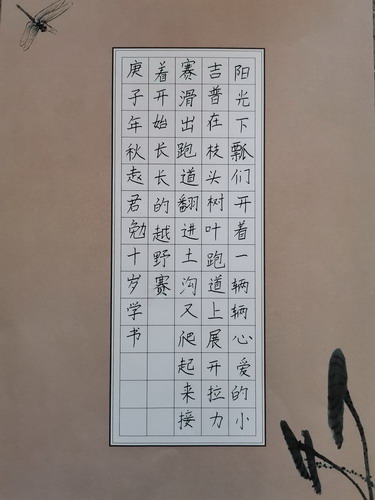 阳光下瓢们开着一辆辆心爱的小
吉普在枝头树叶跑道上展开拉力
赛滑出跑道翻进土沟又爬起来接
着开始长长的越野赛
庚子年秋赵君勉十岁学书